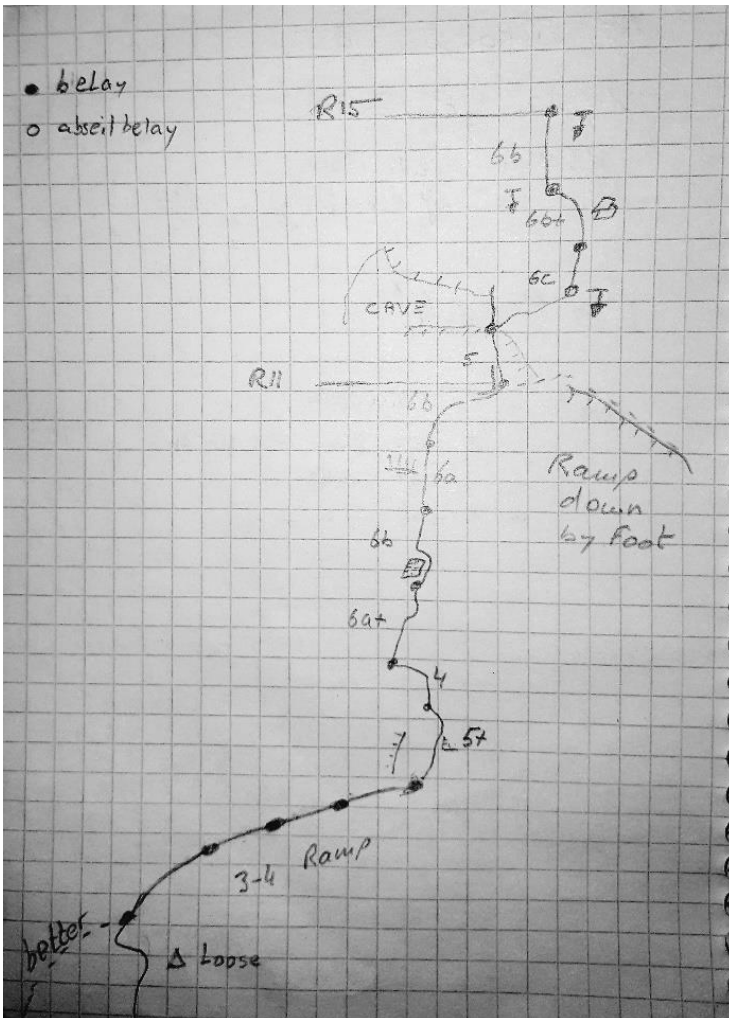 ● belay
○ abseil belay
R15
6b
6b+
6c
CAVE
5
R11
6b
6a
Ramp
down
by Foot
6b
6a+
4
5+
Ramp
3-4
better
Δ Loose